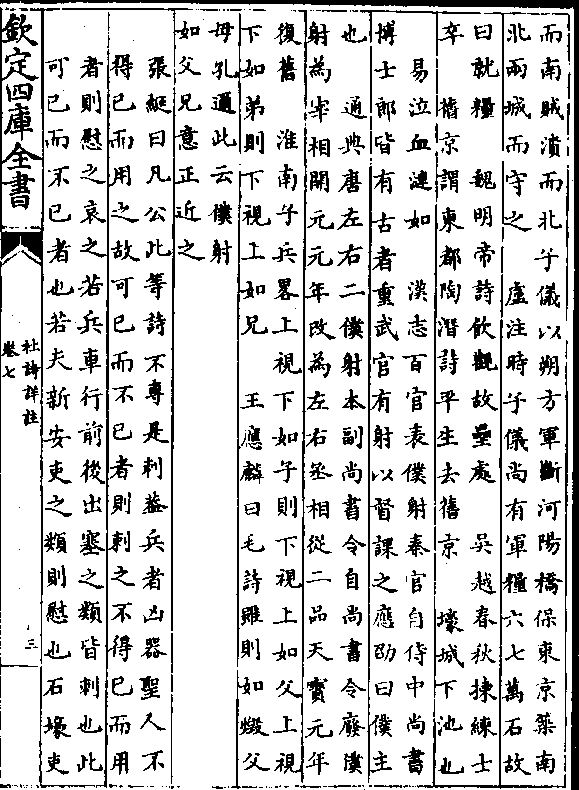 而南賊潰而北子儀以朔方軍斷河陽橋保東京築南
北兩城而守之　盧注時子儀尚有軍糧六七萬石故
曰就糧　魏明帝詩飲觀故壘處　吳越春秋揀練士
卒　舊京謂東都陶潛詩平生去舊京　壕城下池也
易泣血漣如　漢志百官表僕射秦官自侍中尚書
博士郎皆有古者重武官有射以督課之應劭曰僕主
也　通典唐左右二僕射本副尚書令自尚書令廢僕
射為宰相開元元年改為左右丞相從二品天寳元年
復舊　淮南子兵畧上視下如子則下視上如父上視
下如弟則下視上如兄　王應麟曰毛詩雖則如燬父
母孔邇此云僕射
如父兄意正近之
張綖曰凡公此等詩不專是刺蓋兵者凶器聖人不
得已而用之故可已而不已者則刺之不得已而用
者則慰之哀之若兵車行前後出塞之類皆刺也此
可已而不已者也若夫新安吏之類則慰也石壕吏
欽定四庫全書
杜詩詳註
卷七
三